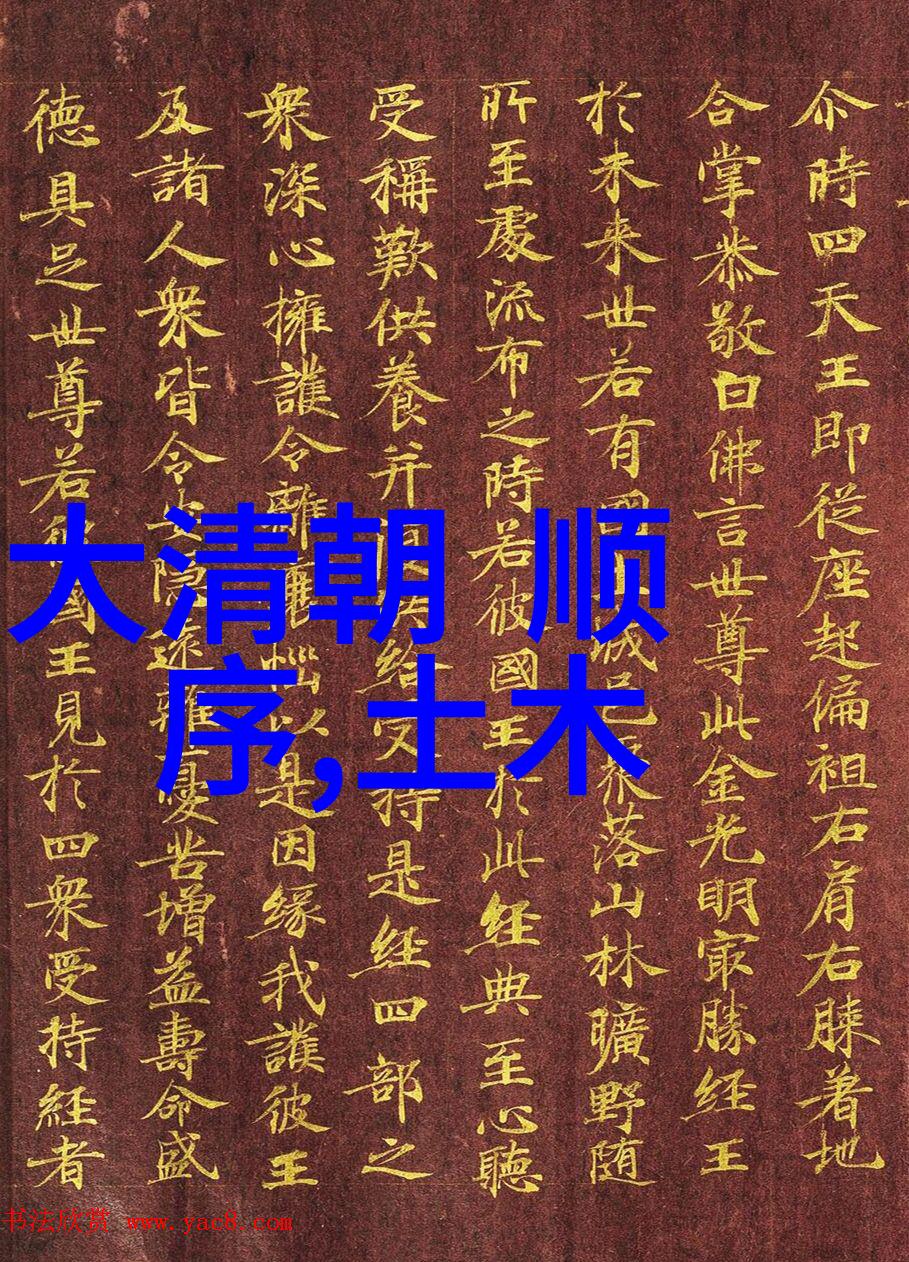 尒時四天王即從座起偏袒右肩右膝著地
合掌恭敬白佛言世尊此金光明㝡勝經王
於未来世若有國城邑聚落山林曠野随
所至處流布之時若彼國王於此經典至心聽
受稱歎供養并給受持是經四部之
衆深心擁護令離惱以是因緣我護彼王
及諸人衆皆令安隱遠離憂苦增益壽命盛
德具足世尊若彼國王見於四衆受持經者
大清朝 顺
序,土木
书法欣赏 www.yac8.com